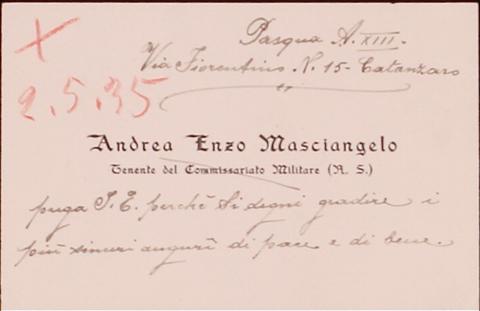 Pasqua A. XIII.
Via Fiorentino N. 15 - Catanzaro
2.5.35
Andrea Enzo Masciangelo
Tenente del Commissariato Militare (R. S.)
prega S. E. perchè Si degni gradire i
più sinceri augurî di pace e di bene.